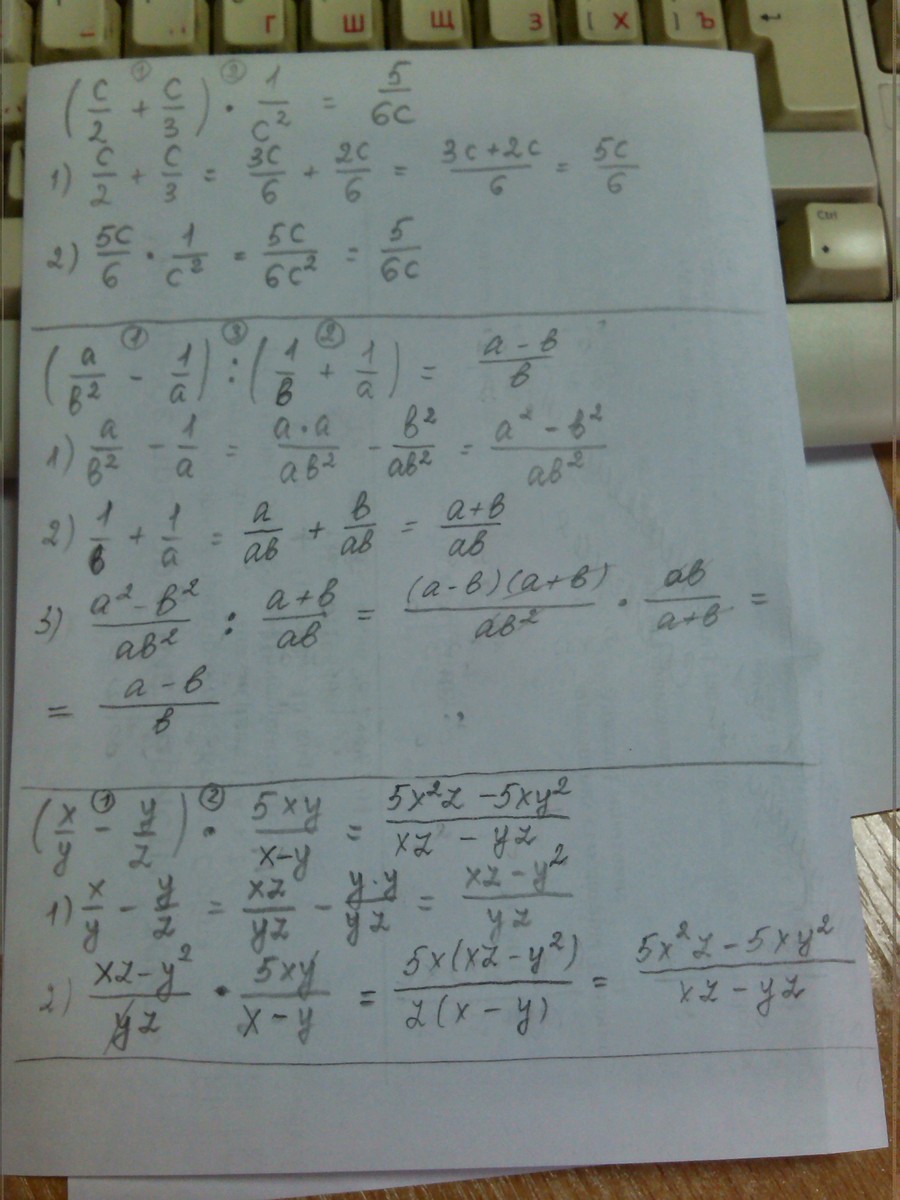 Г Ш Щ З [ Х ] Ъ
(c/2 + c/3) · 1/c² = 5/6c
① ②
1) c/2 + c/3 = 3c/6 + 2c/6 = 3c+2c/6 = 5c/6
Ctrl
2) 5c/6 · 1/c² = 5c/6c² = 5/6c
① ③ ②
(a/b² - 1/a) : (1/b + 1/a) = a-b/b
1) a/b² - 1/a = a·a/ab² - b²/ab² = a²-b²/ab²
2) 1/b + 1/a = a/ab + b/ab = a+b/ab
3) a²-b²/ab² : a+b/ab = (a-b)(a+b)/ab² · ab/a+b =
= a-b/b
① ②
(x/y - y/z) · 5xy/x-y = 5x²z-5xy²/xz-yz
1) x/y - y/z = xz/yz - y·y/yz = xz-y²/yz
2) xz-y²/yz · 5xy/x-y = 5x(xz-y²)/z(x-y) = 5x²z-5xy²/xz-yz